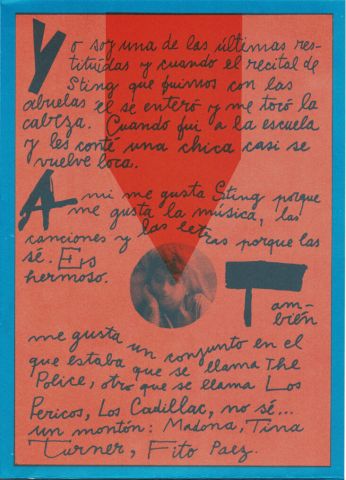 Yo soy una de las últimas res-
tituídas y cuando el recital de
Sting que fuimos con las
abuelas él se enteró y me tocó la
cabeza. Cuando fui a la escuela
y les conté una chica casi se
vuelve loca.
A mi me gusta Sting porque
me gusta la música, las
canciones y las letras porque las
sé. Es
hermoso.
Tam-
bién
me gusta un conjunto en el
que estaba que se llama The
Police, otro que se llama Los
Pericos, Los Cadillac, no sé...
un montón: Madona, Tina
Turner, Fito Paez.